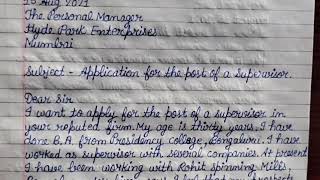 Aug 2021
The Personal Manager
Hyde Park Enterprises
Mumbai
Subject - Application for the post of a Supervisor.
Dear Sir
I want to apply for the post of a supervisor in
your reputed firm. My age is thirty years. I have
done B.A. from Presidency college, Bengaluru. I have
worked as supervisor with several companies. At present
I have been working with Rohit Spinning Mills,